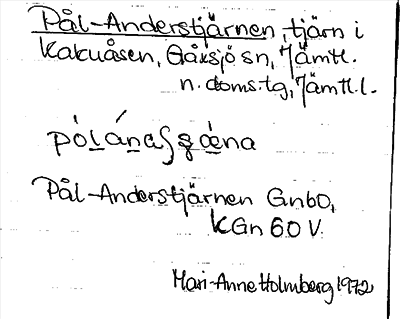 Pål-Anderstjärnen, tjärn i
Kakuåsen, Gåxsjö sn, Jämtl.
n. doms.tg, Jämtl. l.
Pål-Anderstjärnen Gnb0,
KGn 60 V.
Mari-Anne Holmberg 1972